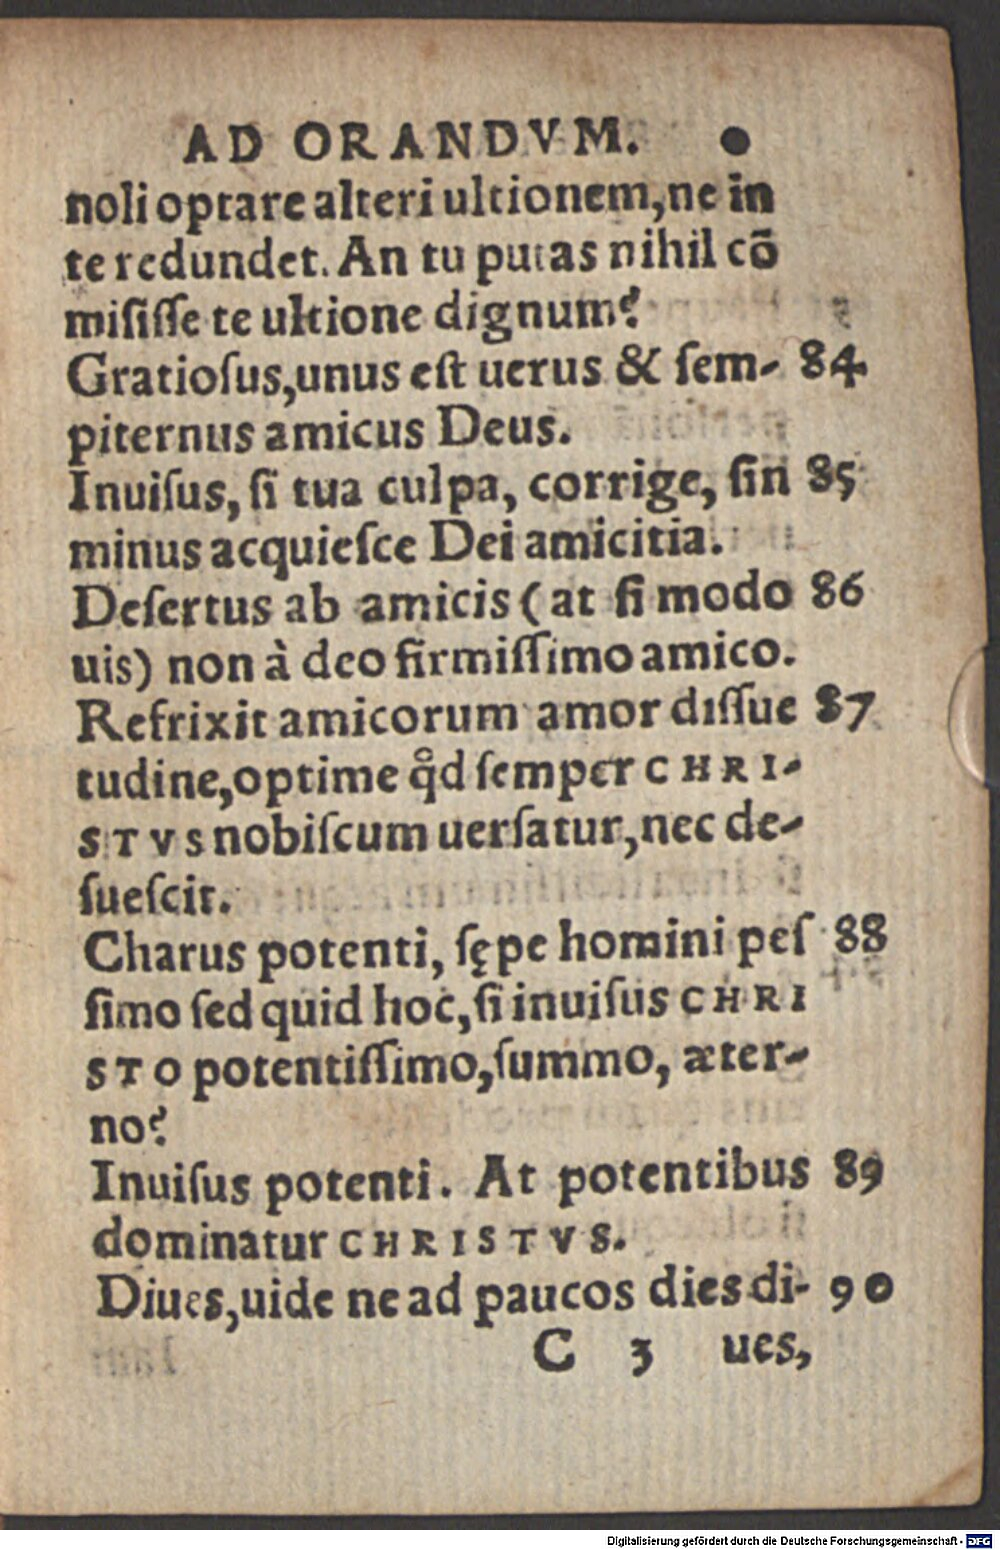 AD ORANDVM. ●
noli optare alteri ultionem,ne in
te redundet. An tu putas nihil cõ
misisſe te ultione dignum?
Gratioſus,unus eſt uerus & ſem- 84
piternus amicus Deus.
Inuiſus, ſi tua culpa, corrige, ſin 85
minus acquieſce Dei amicitia.
Deſertus ab amicis (at ſi modo 86
uis) non à deo firmiſſimo amico.
Refrixit amicorum amor diſſue 87
tudine,optime qͦd ſemper CHRI-
STVS nobiſcum uerſatur,nec de-
ſueſcit.
Charus potenti, ſępe homini peſ 88
ſimo ſed quid hoc,ſi inuiſus CHRI
STO potentiſſimo,ſummo, æter-
no?
Inuiſus potenti. At potentibus 89
dominatur CHRISTVS.
Diues,uide ne ad paucos dies di- 90
C 3 ues,
Digitalisierung gefördert durch die Deutsche Forschungsgemeinschaft - DFG